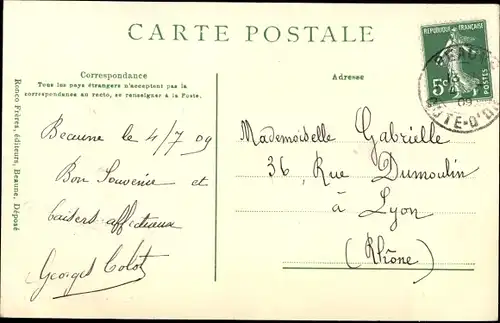 CARTE POSTALE
Correspondance
Tous les pays étrangers n'acceptent pas la
correspondance au recto, se renseigner à la Poste.
Adresse
RÉPUBLIQUE FRANÇAISE
5c
POSTES
BEAUNE
09
CÔTE-D'OR
Ronco Frères, éditeurs, Beaune, Déposé
Beaune le 4/7 09
Bon Souvenir et
baisers affectueux
Georges
Mademoiselle Gabrielle
36, Rue Dumoulin
à Lyon
(Rhône)